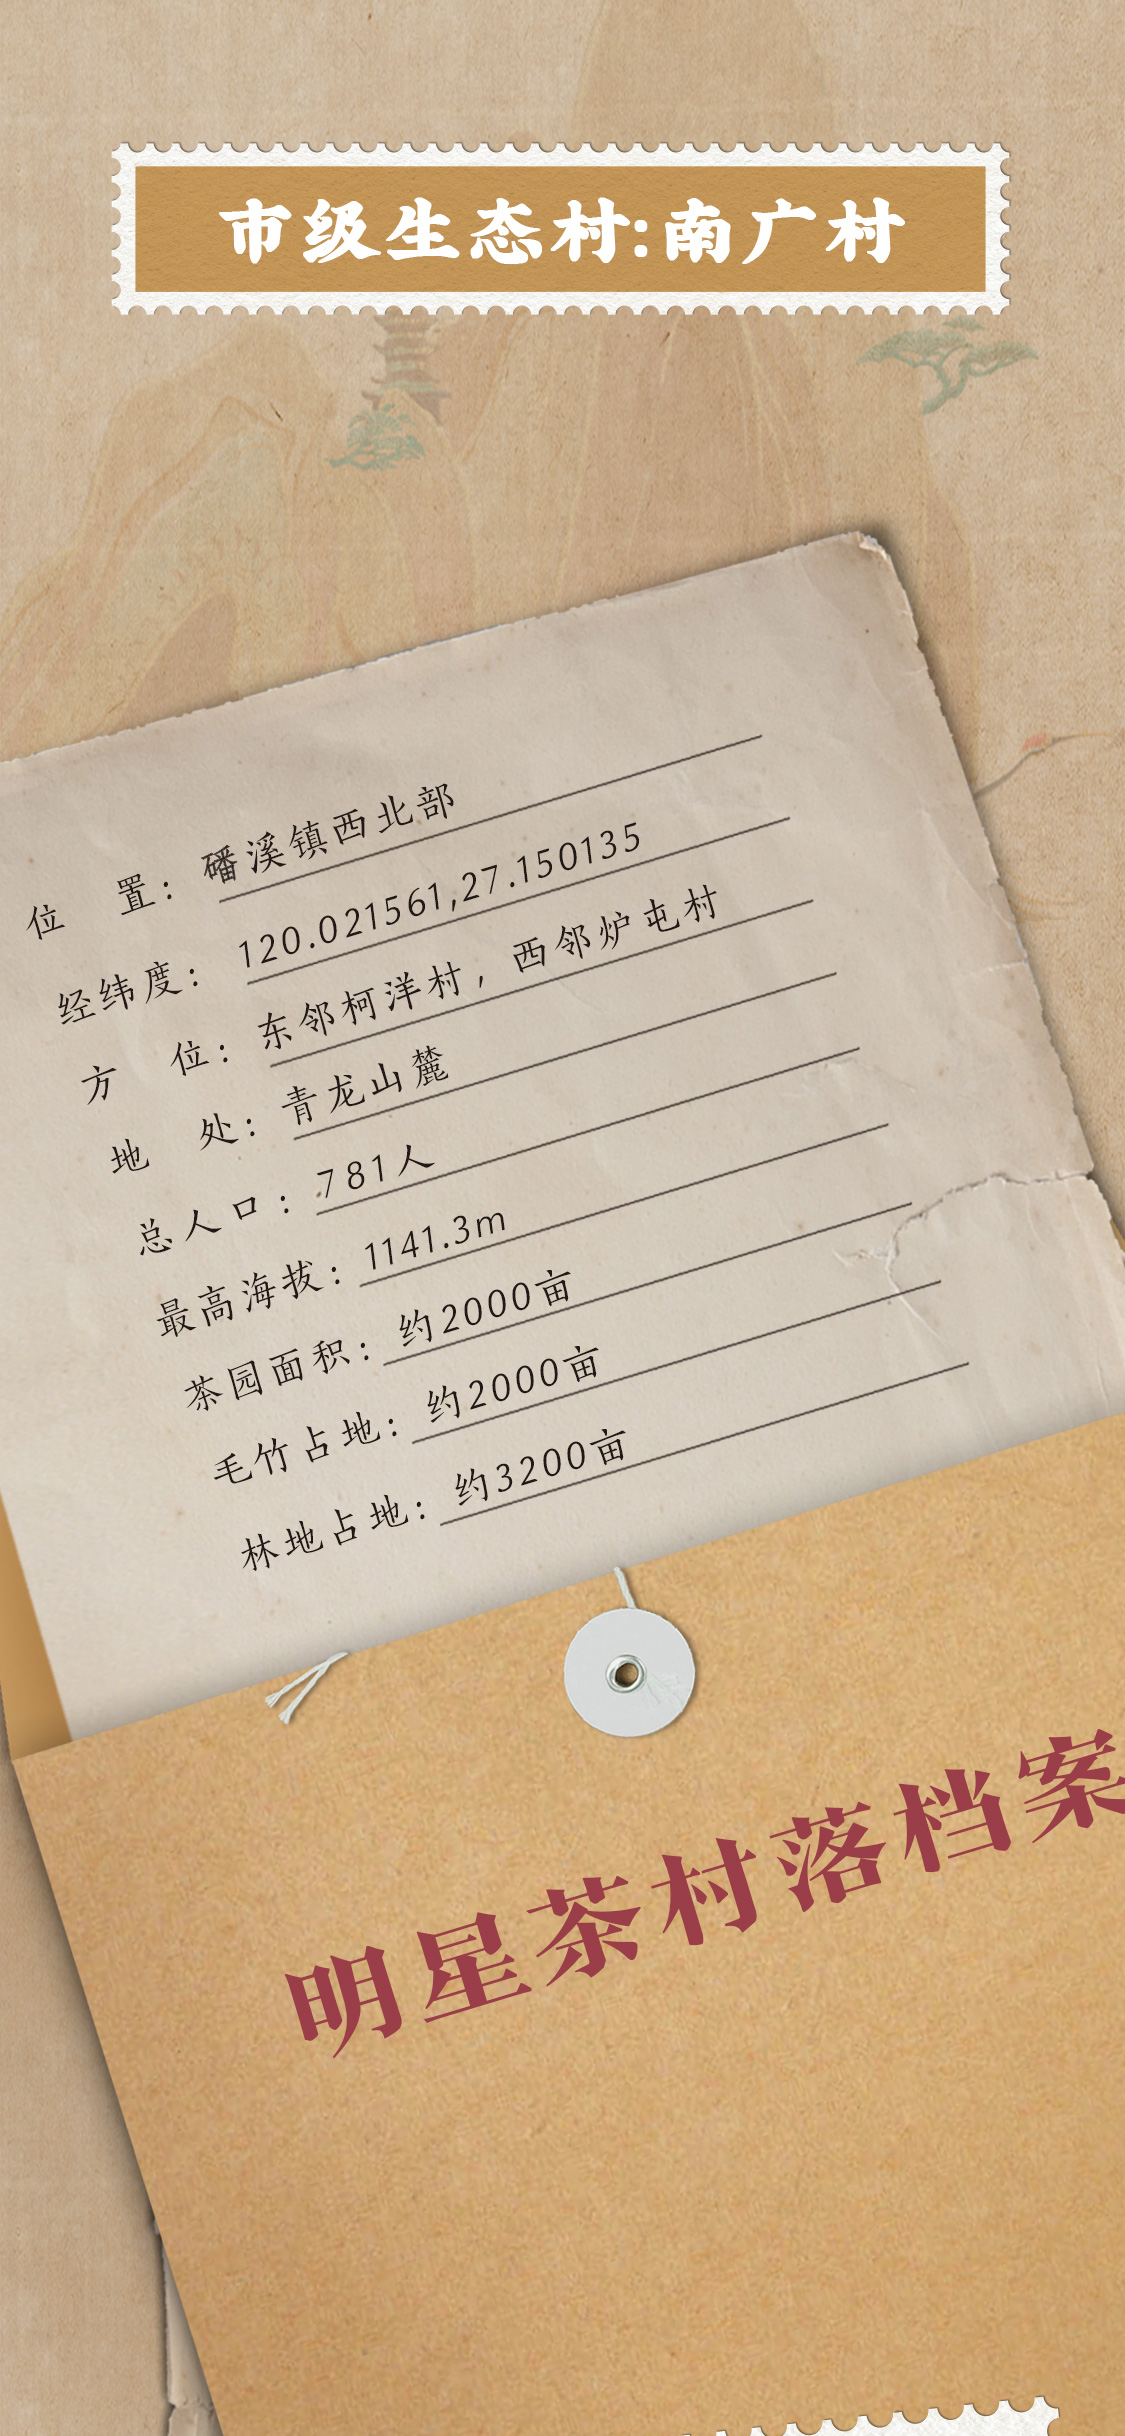 市级生态村:南广村
位置：磻溪镇西北部
经纬度：120.021561,27.150135
方位：东邻柯洋村，西邻炉屯村
地处：青龙山麓
总人口：781人
最高海拔：1141.3m
茶园面积：约2000亩
毛竹占地：约2000亩
林地占地：约3200亩
明星茶村落档案